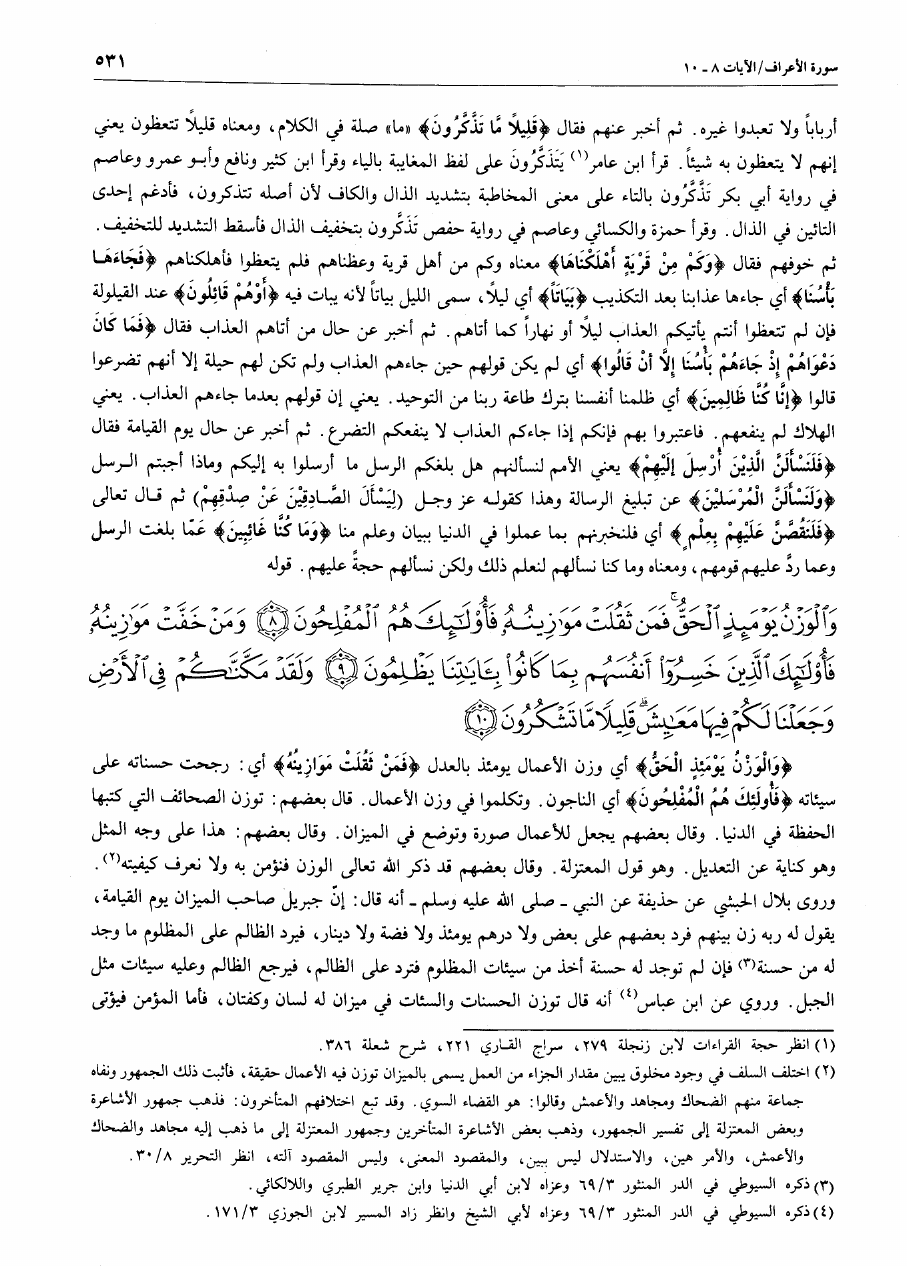 سورة الأعراف/الآيات ٨ ـ ١٠
٥٣١
أرباباً ولا تعبدوا غيره. ثم أخبر عنهم فقال ﴿قَلِيلاً مَّا تَذَّكَّرُونَ﴾ «ما» صلة في الكلام، ومعناه قليلاً تتعظون يعني
إنهم لا يتعظون به شيئاً. قرأ ابن عامر(١) يَتَذَكَّرُونَ على لفظ المغايبة بالياء وقرأ ابن كثير ونافع وأبو عمرو وعاصم
في رواية أبي بكر تَذَّكَّرُون بالتاء على معنى المخاطبة بتشديد الذال والكاف لأن أصله تتذكرون، فأدغم إحدى
التائين في الذال. وقرأ حمزة والكسائي وعاصم في رواية حفص تَذَكَّرون بتخفيف الذال فأسقط التشديد للتخفيف.
ثم خوفهم فقال ﴿وَكَمْ مِنْ قَرْيَةٍ أَهْلَكْنَاهَا﴾ معناه وكم من أهل قرية وعظناهم فلم يتعظوا فأهلكناهم ﴿فَجَاءَهَا
بَأْسُنَا﴾ أي جاءها عذابنا بعد التكذيب ﴿بَيَاتاً﴾ أي ليلاً، سمى الليل بياتاً لأنه يبات فيه ﴿أَوْهُمْ قَائِلُونَ﴾ عند القيلولة
فإن لم تتعظوا أنتم يأتيكم العذاب ليلاً أو نهاراً كما أتاهم. ثم أخبر عن حال من أتاهم العذاب فقال ﴿فَمَا كَانَ
دَعْوَاهُمْ إِذْ جَاءَهُمْ بَأْسُنَا إِلَّا أَنْ قَالُوا﴾ أي لم يكن قولهم حين جاءهم العذاب ولم تكن لهم حيلة إلا أنهم تضرعوا
قالوا ﴿إِنَّا كُنَّا ظَالِمِينَ﴾ أي ظلمنا أنفسنا بترك طاعة ربنا من التوحيد. يعني إن قولهم بعدما جاءهم العذاب. يعني
الهلاك لم ينفعهم. فاعتبروا بهم فإنكم إذا جاءكم العذاب لا ينفعكم التضرع. ثم أخبر عن حال يوم القيامة فقال
﴿فَلَنَسْأَلَنَّ الَّذِينَ أُرْسِلَ إِلَيْهِمْ﴾ يعني الأمم لنسألنهم هل بلغكم الرسل ما أرسلوا به إليكم وماذا أجبتم الرسل
﴿وَلَنَسْأَلَنَّ الْمُرْسَلِيْنَ﴾ عن تبليغ الرسالة وهذا كقوله عز وجل (لِيَسْأَلَ الصَّادِقِيْنَ عَنْ صِدْقِهِمْ) ثم قال تعالى
﴿فَلَنَقُصَّنَّ عَلَيْهِمْ بِعِلْمٍ﴾ أي فلنخبرنهم بما عملوا في الدنيا ببيان وعلم منا ﴿وَمَا كُنَّا غَائِبِينَ﴾ عَمّا بلغت الرسل
وعما ردَّ عليهم قومهم، ومعناه وما كنا نسألهم لنعلم ذلك ولكن نسألهم حجةً عليهم. قوله
وَٱلْوَزْنُ يَوْمَئِذٍ ٱلْحَقُّ ۚ فَمَن ثَقُلَتْ مَوَٰزِينُهُۥ فَأُو۟لَٰٓئِكَ هُمُ ٱلْمُفْلِحُونَ ﴿٨﴾ وَمَنْ خَفَّتْ مَوَٰزِينُهُۥ
فَأُو۟لَٰٓئِكَ ٱلَّذِينَ خَسِرُوٓا۟ أَنفُسَهُم بِمَا كَانُوا۟ بِـَٔايَٰتِنَا يَظْلِمُونَ ﴿٩﴾ وَلَقَدْ مَكَّنَّٰكُمْ فِى ٱلْأَرْضِ
وَجَعَلْنَا لَكُمْ فِيهَا مَعَٰيِشَ ۗ قَلِيلًا مَّا تَشْكُرُونَ ﴿١٠﴾
﴿وَالْوَزْنُ يَوْمَئِذٍ الْحَقُّ﴾ أي وزن الأعمال يومئذ بالعدل ﴿فَمَنْ ثَقُلَتْ مَوَازِينُهُ﴾ أي: رجحت حسناته على
سيئاته ﴿فَأُولَئِكَ هُمُ الْمُفْلِحُونَ﴾ أي الناجون. وتكلموا في وزن الأعمال. قال بعضهم: توزن الصحائف التي كتبها
الحفظة في الدنيا. وقال بعضهم يجعل للأعمال صورة وتوضع في الميزان. وقال بعضهم: هذا على وجه المثل
وهو كناية عن التعديل. وهو قول المعتزلة. وقال بعضهم قد ذكر الله تعالى الوزن فنؤمن به ولا نعرف كيفيته(٢).
وروى بلال الحبشي عن حذيفة عن النبي ـ صلى الله عليه وسلم ـ أنه قال: إنّ جبريل صاحب الميزان يوم القيامة،
يقول له ربه زن بينهم فرد بعضهم على بعض ولا درهم يومئذ ولا فضة ولا دينار، فيرد الظالم على المظلوم ما وجد
له من حسنة(٣) فإن لم توجد له حسنة أخذ من سيئات المظلوم فترد على الظالم، فيرجع الظالم وعليه سيئات مثل
الجبل. وروي عن ابن عباس(٤) أنه قال توزن الحسنات والسئات في ميزان له لسان وكفتان، فأما المؤمن فيؤتى
(١) انظر حجة القراءات لابن زنجلة ٢٧٩، سراج القاري ٢٢١، شرح شعلة ٣٨٦.
(٢) اختلف السلف في وجود مخلوق يبين مقدار الجزاء من العمل يسمى بالميزان توزن فيه الأعمال حقيقة، فأثبت ذلك الجمهور ونفاه
جماعة منهم الضحاك ومجاهد والأعمش وقالوا: هو القضاء السوي. وقد تبع اختلافهم المتأخرون: فذهب جمهور الأشاعرة
وبعض المعتزلة إلى تفسير الجمهور، وذهب بعض الأشاعرة المتأخرين وجمهور المعتزلة إلى ما ذهب إليه مجاهد والضحاك
والأعمش، والأمر هين، والاستدلال ليس ببين، والمقصود المعنى، وليس المقصود آلته، انظر التحرير ٣٠/٨.
(٣) ذكره السيوطي في الدر المنثور ٦٩/٣ وعزاه لابن أبي الدنيا وابن جرير الطبري واللالكائي.
(٤) ذكره السيوطي في الدر المنثور ٦٩/٣ وعزاه لأبي الشيخ وانظر زاد المسير لابن الجوزي ١٧١/٣.